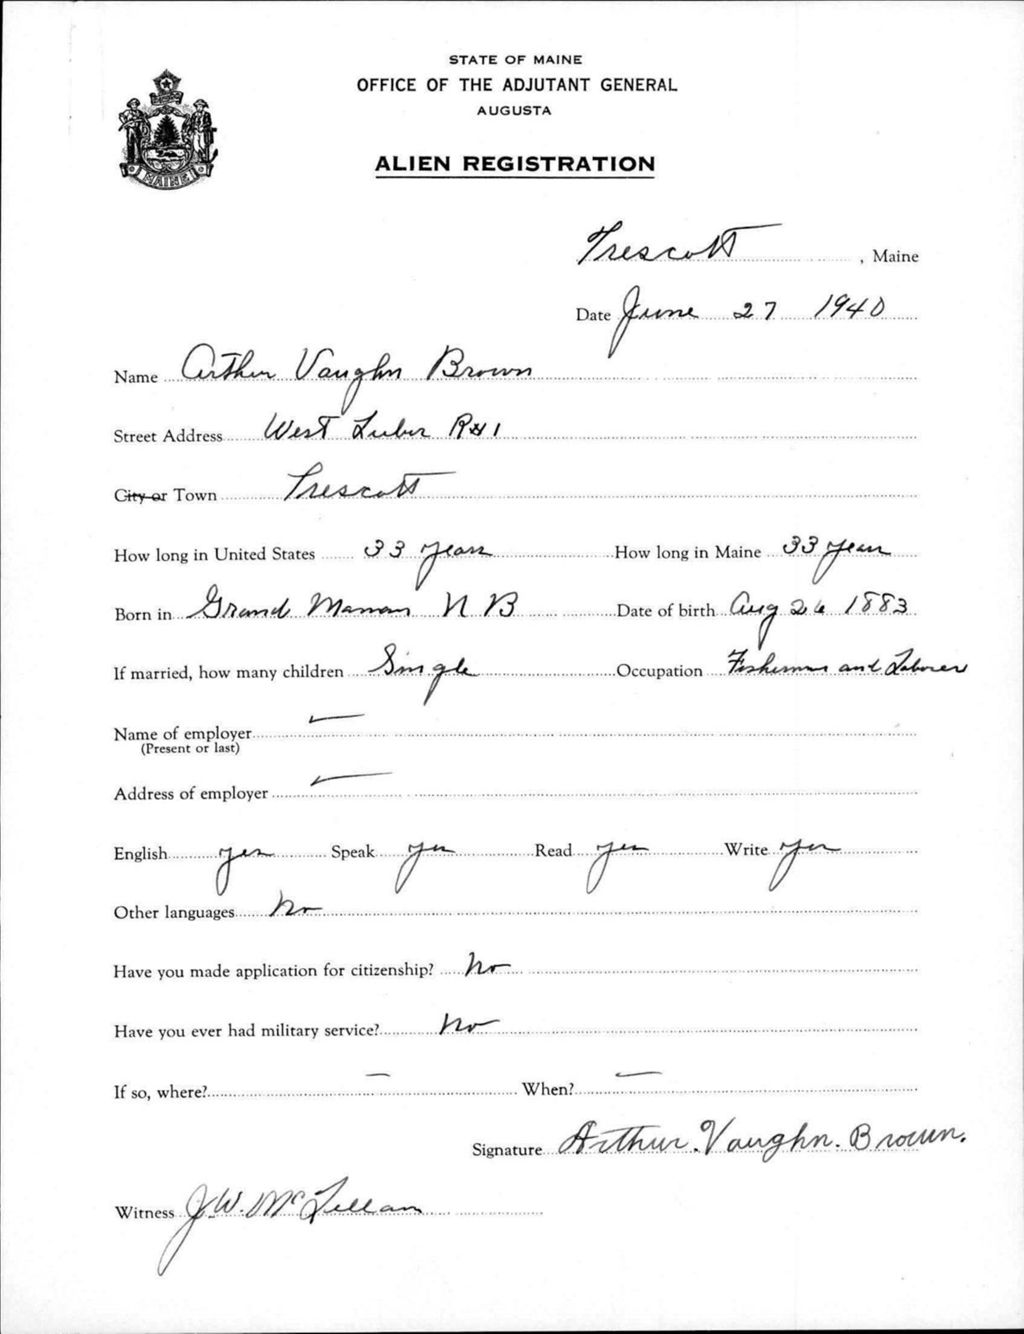 STATE OF MAINE
OFFICE OF THE ADJUTANT GENERAL
AUGUSTA
ALIEN REGISTRATION
MAINE
Trescott, Maine
Date June 27 1940
Name Arthur Vaughn Brown
Street Address West Lubec R#1
City or Town Trescott
How long in United States 33 years How long in Maine 33 years
Born in Grand Manan N B Date of birth Aug 26 1883
If married, how many children Single Occupation Fisherman and Laborer
Name of employer
(Present or last)
Address of employer
English yes Speak yes Read yes Write yes
Other languages No
Have you made application for citizenship? No
Have you ever had military service? No
If so, where? — When? —
Signature Arthur. Vaughn. Brown.
Witness J. W. McLellan